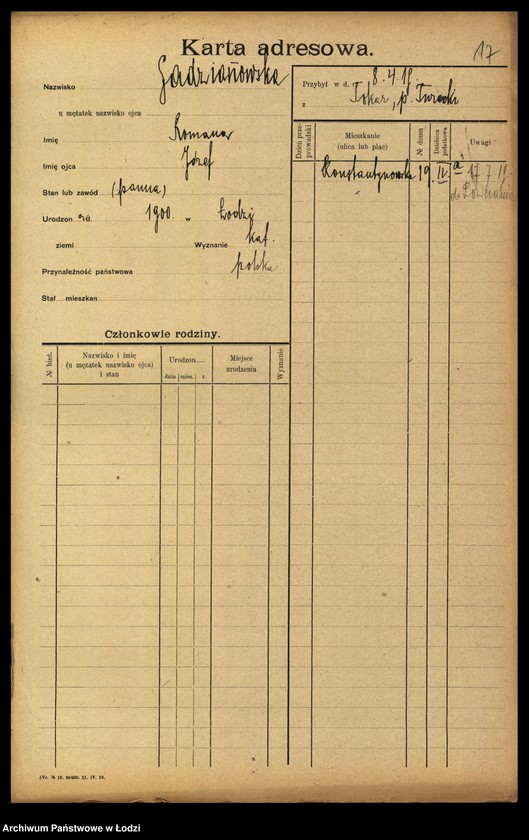 17
Karta adresowa.
Nazwisko Gadzianowska
u mężatek nazwisko ojca
Imię Romana
Imię ojca Józef
Stan lub zawód (panna)
Urodzon a d. 1900. w Łodzi
ziemi Wyznanie kat.
Przynależność państwowa polska
Stał mieszkan
Przybył w d. 8.4.19.
z Tokar, p. Turecki
Dzień przeprowadzki
Mieszkanie
(ulica lub plac)
№ domu
Dzielnica podatkowa
Uwagi
Konstantynowska 19. IV. a 17 7 19
do
Członkowie rodziny.
№ bież.
Nazwisko i imię
(u mężatek nazwisko ojca)
i stan
Urodzon
dnia mies. r.
Miejsce
urodzenia
Wyznanie
Archiwum Państwowe w Łodzi